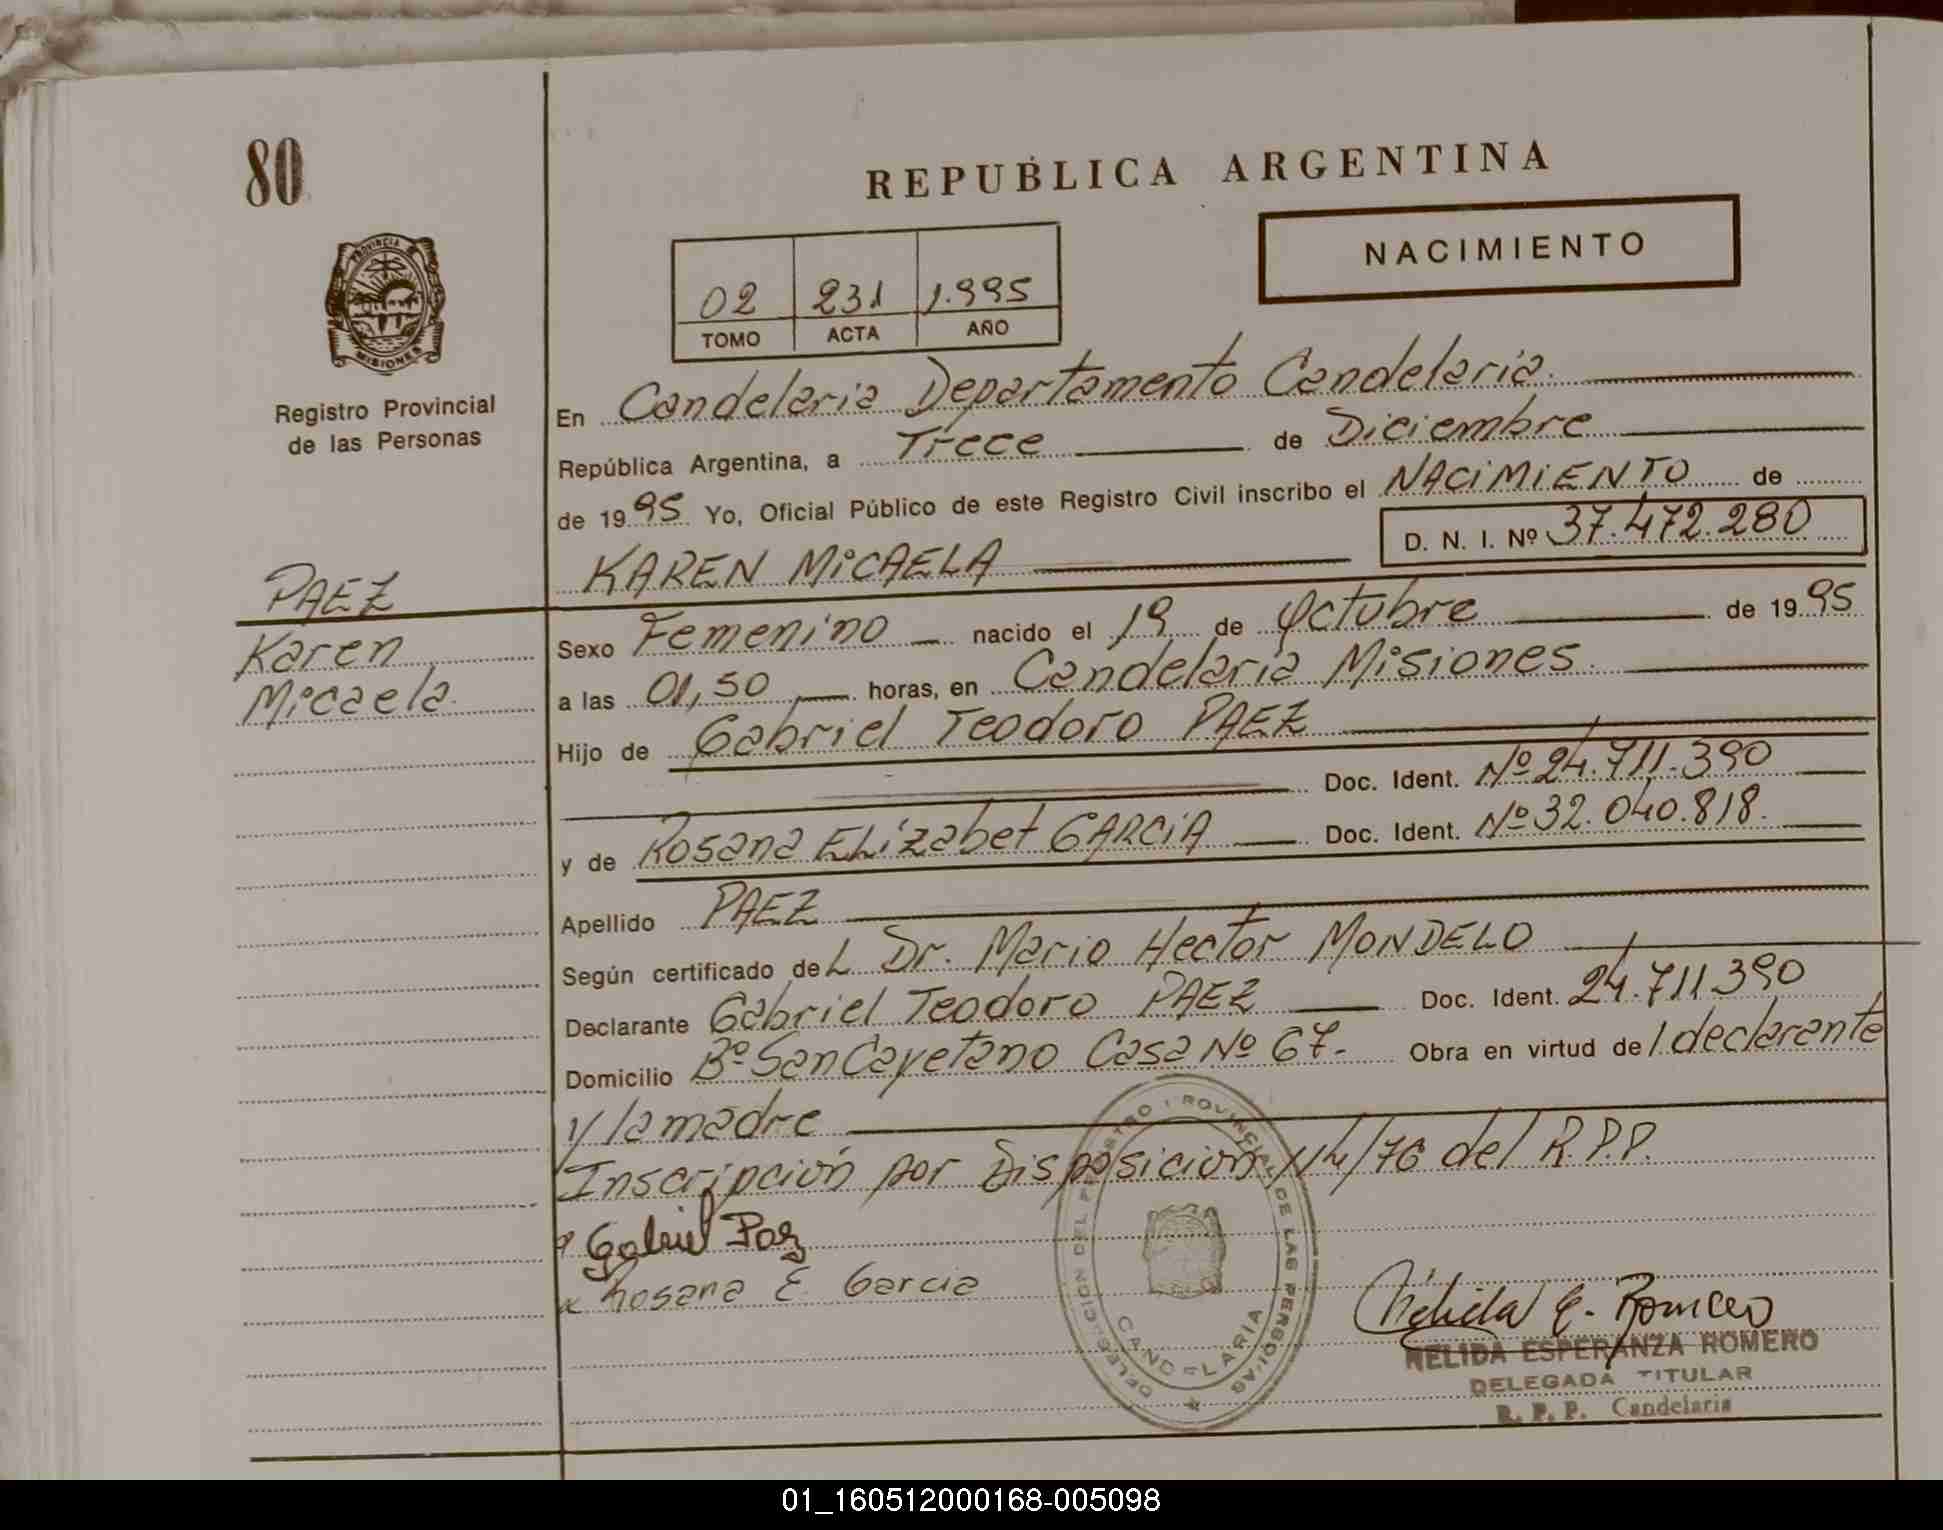 80
REPUBLICA ARGENTINA
NACIMIENTO
PROVINCIA
MISIONES
Registro Provincial
de las Personas
02 231 1.995
TOMO ACTA AÑO
En Candelaria Departamento Candelaria.
República Argentina, a Trece de Diciembre
de 1995 Yo, Oficial Público de este Registro Civil inscribo el NACIMIENTO de
KAREN MICAELA D. N. I. Nº 37.472.280
PAEZ
Karen
Micaela.
Sexo Femenino nacido el 19 de Octubre de 1995
a las 01,50 horas, en Candelaria Misiones.
Hijo de Gabriel Teodoro PAEZ
Doc. Ident. Nº 24.711.390
y de Rosana Elizabet GARCIA Doc. Ident. Nº 32.040.818.
Apellido PAEZ
Según certificado del Dr. Mario Hector MONDELO
Declarante Gabriel Teodoro PAEZ Doc. Ident. 24.711390
Domicilio Bº San Cayetano Casa Nº 67.- Obra en virtud del declarante
y la madre
Inscripción por Disposición 114/76 del R.P.P.
Gabriel Paz
Rosana E. Garcia
DELEGACION DEL REGISTRO PROVINCIAL DE LAS PERSONAS
CANDELARIA
Nélida E. Romero
NELIDA ESPERANZA ROMERO
DELEGADA TITULAR
R. P. P. Candelaria
01_160512000168-005098